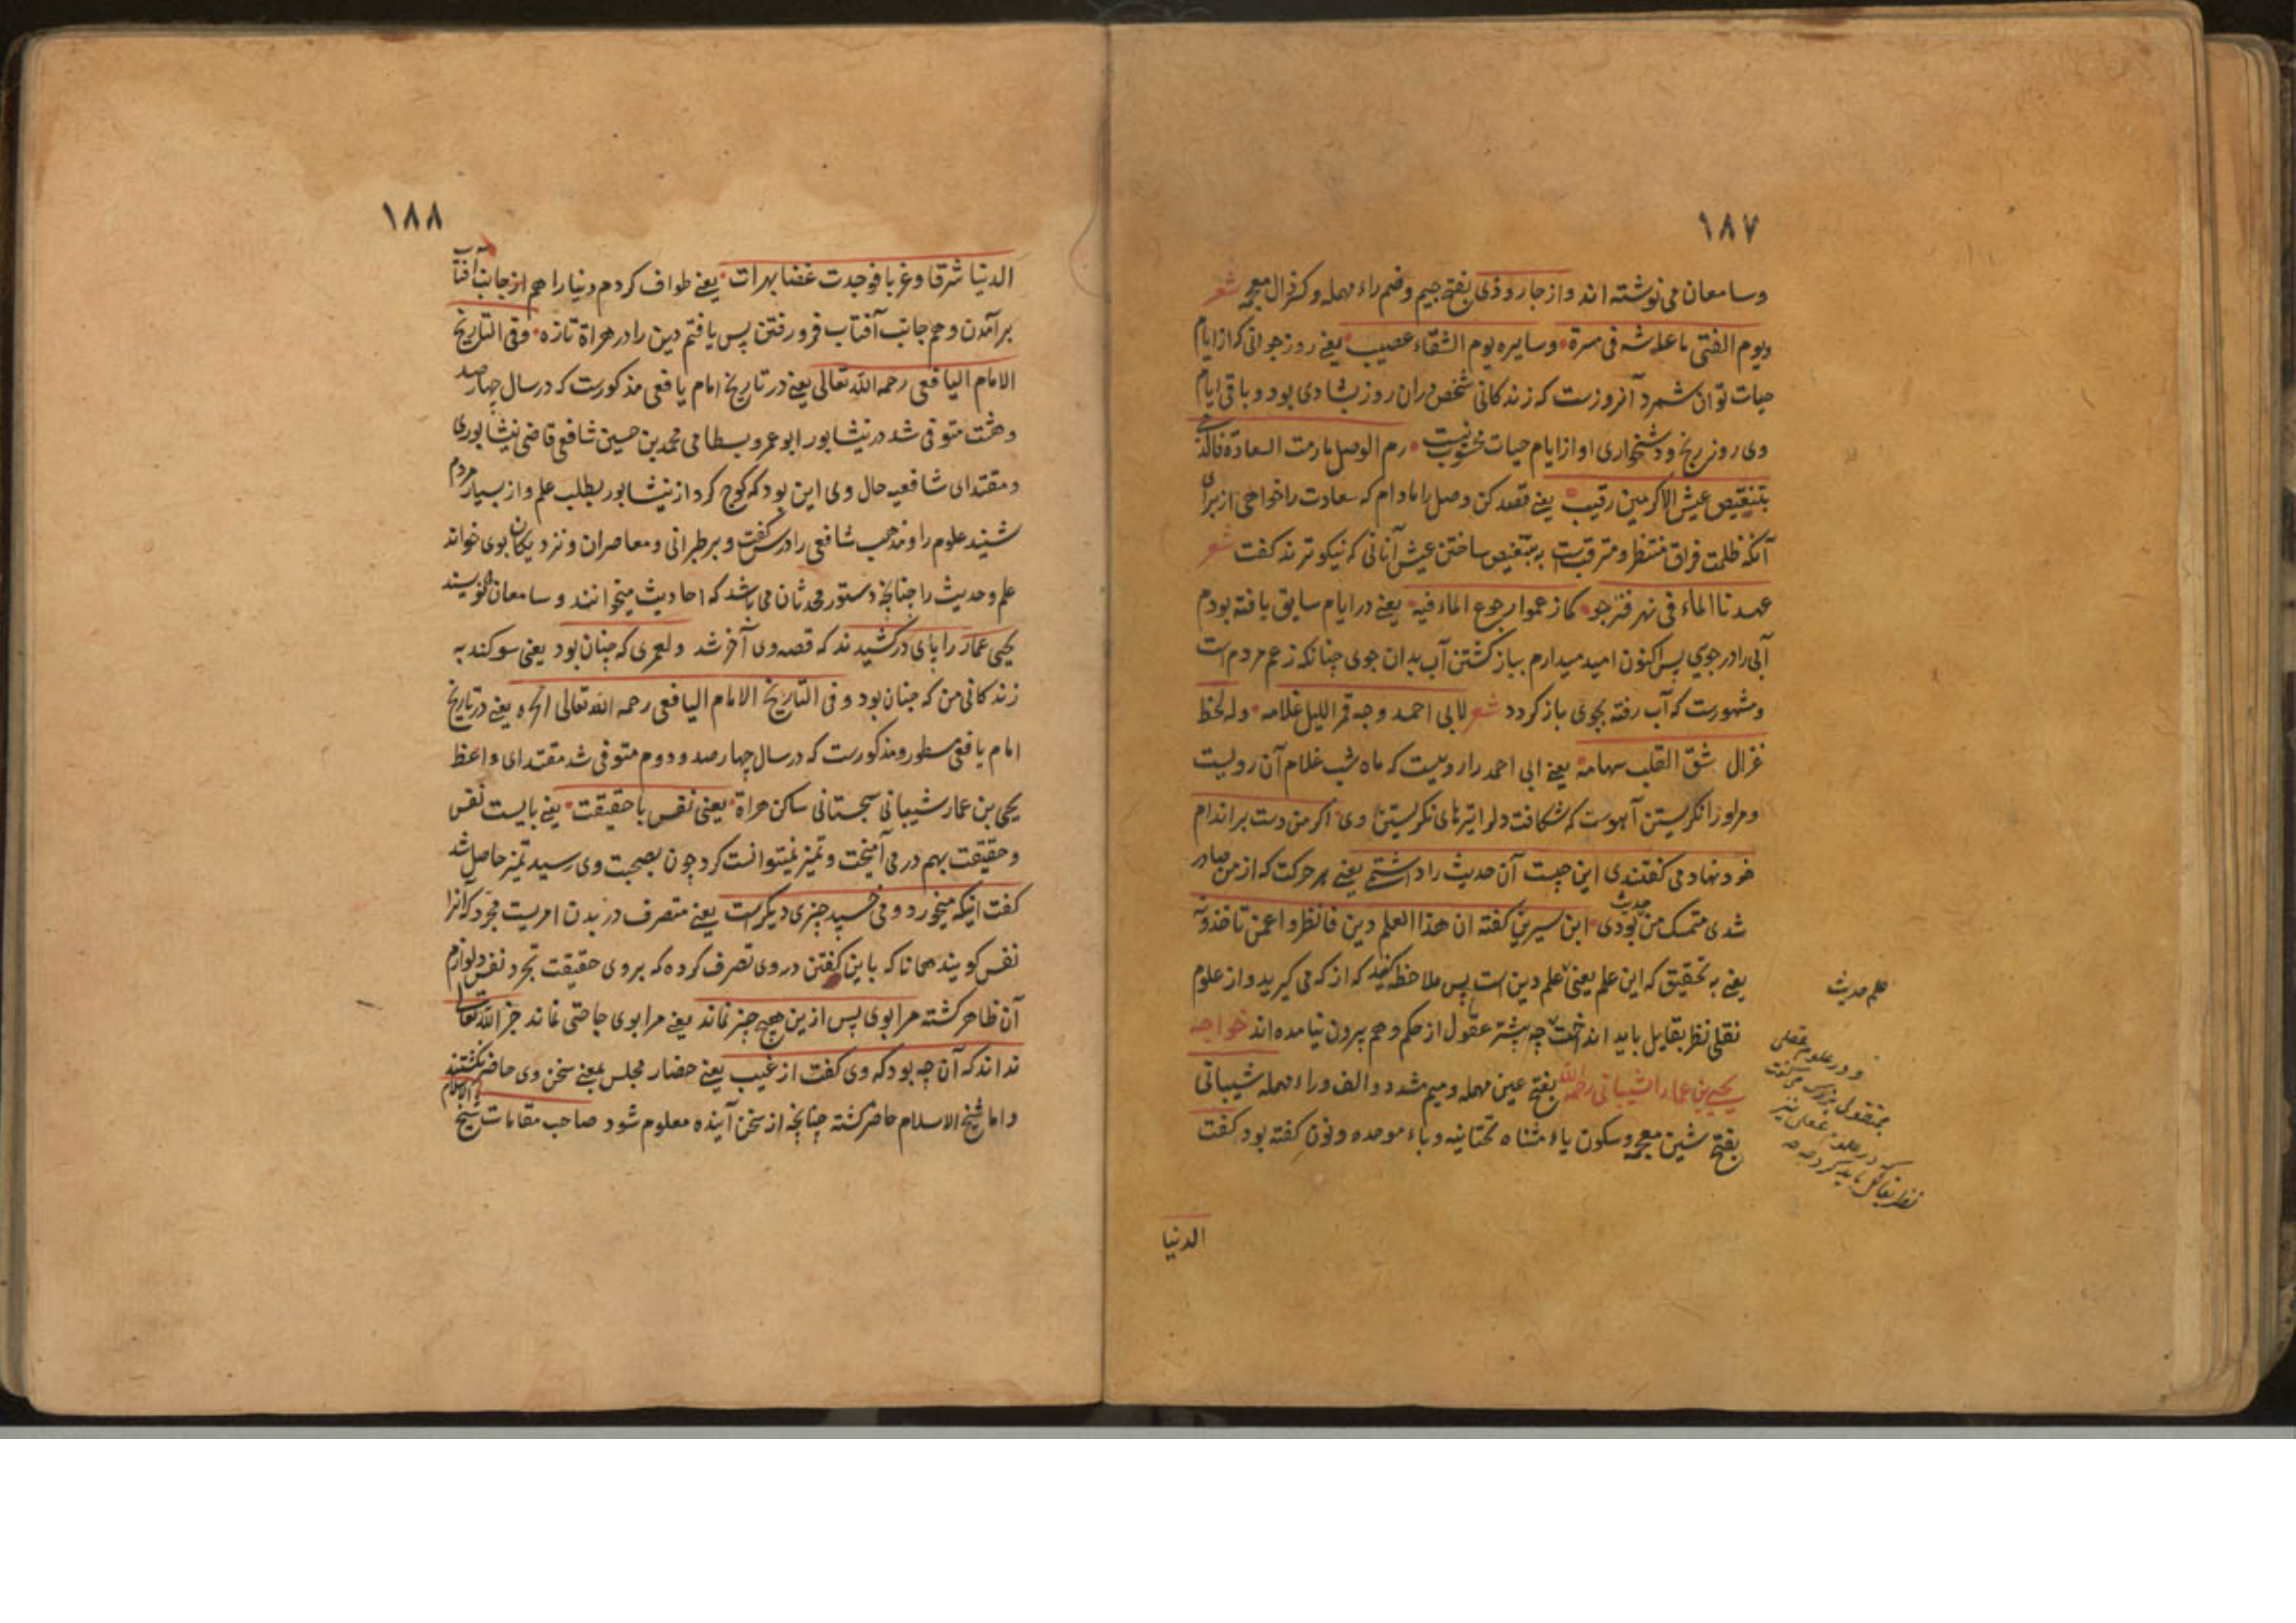 ١٨٧
وسامعان می نوشته اند واز جارودی بفتح جیم وضم راء مهمله وکسر ذال معجمه شعر
ویوم الفتی ما عاشه فی مسرة وسایره یوم الشقاء عصیب یعنی روز جوانی که از ایام
حیات توان شمرد آنروزست که زندکانی شخص دران روز بشادی بود وباقی ایام
وی روز رنج ودشخواری او از ایام حیات محسوب نیست رم الوصل ما رمت السعادة فالذی
بتنغیص عیش الاکرمین رقیب یعنی قصد کن وصل را مادام که سعادت را خواهی از برای
آنکه ظلمت فراق منتظر ومترقبست به تنغیص ساختن عیش آنانی که نیکوترند کفت شعر
عهدنا الماء فی نهر فنرجو کما زعموا رجوع الماء فیه یعنی در ایام سابق یافته بودم
آبی را در جوی پس اکنون امید میدارم بباز کشتن آب بدان جوی چنانکه زعم مردم است
ومشهورست که آب رفته بجوی باز کردد شعر لابی احمد وجه قمر اللیل غلامه وله لحظ
غزال شق القلب سهامه یعنی ابی احمد را روییست که ماه شب غلام آن رویست
ومر او را نکریستن آهوست که شکافت دلرا تیرهای نکریستن وی اکر من دست بر اندام
خود نهادمی کفتندی این چیست آن حدیث را داشتمی یعنی هر حرکت که از من صادر
شدی متمسک من حدیث بودی ابن سیرین کفته ان هذا العلم دین فانظروا عمن تاخذونه
یعنی به تحقیق که این علم یعنی علم دین است پس ملاحظه کنید که از که می کیرید واز علوم
علم حدیث
نقلی نظر بقایل باید انداخت چه بیشتر عقول از حکم وهم بیرون نیامده اند خواجه
یحیی بن عمار الشیبانی رحمه الله بفتح عین مهمله ومیم مشدد والف وراء مهمله شیبانی
بفتح شین معجمه وسکون یاء مثناه تحتانیه وباء موحده ونون کفته بود کفت
ودر علوم عقلی
نظر بقایل باید کرد
الدنیا
١٨٨
الدنیا شرقا وغربا فوجدت غضا بهرات یعنی طواف کردم دنیا را هم از جانب آفتاب
برآمدن وهم جانب آفتاب فرو رفتن پس یافتم دین را در هراة تازه وفی التاریخ
الامام الیافعی رحمه الله تعالی یعنی در تاریخ امام یافعی مذکورست که در سال چهار صد
وهشت متوفی شد در نیشابور ابو عمرو بسطامی محمد بن حسین شافعی قاضی نیشابوری
ومقتدای شافعیه حال وی این بود که کوچ کرد از نیشابور بطلب علم واز بسیار مردم
شنید علوم را ومذهب شافعی را درس کفت وبر طبرانی ومعاصران ونزدیکان بوی خواند
علم وحدیث را چنانچه دستور محدثان می باشد که احادیث میخوانند وسامعان می نویسند
یحیی عمار را پای درکشیدند که قصه وی آخر شد ولعمری که چنان بود یعنی سوکند به
زندکانی من که چنان بود وفی التاریخ الامام الیافعی رحمه الله تعالی الخ یعنی در تاریخ
امام یافعی مسطور ومذکورست که در سال چهارصد ودوم متوفی شد مقتدای واعظ
یحیی بن عمار شیبانی سجستانی ساکن هراة یعنی نفس با حقیقت یعنی بایست نفس
وحقیقت بهم در می آمیخت وتمیز نمیتوانست کرد چون بصحبت وی رسید تمیز حاصل شد
کفت اینکه میخورد ومی خسپد چیزی دیکرست یعنی متصرف در بدن امریست مجرد که آنرا
نفس کویند همانا که باین کفتن در وی تصرف کرده که بروی حقیقت تجرد نفس ولوازم
آن ظاهر کشته مرا بوی پس ازین هیچ چیز نماند یعنی مرا بوی حاجتی نماند جز الله تعالی
نداند که آن چه بود که وی کفت از غیب یعنی حضار مجلس بمعنی سخن وی حاضر نکشتند
واما شیخ الاسلام حاضر کشته چنانچه از سخن آینده معلوم شود صاحب مقامات شیخ الاسلام